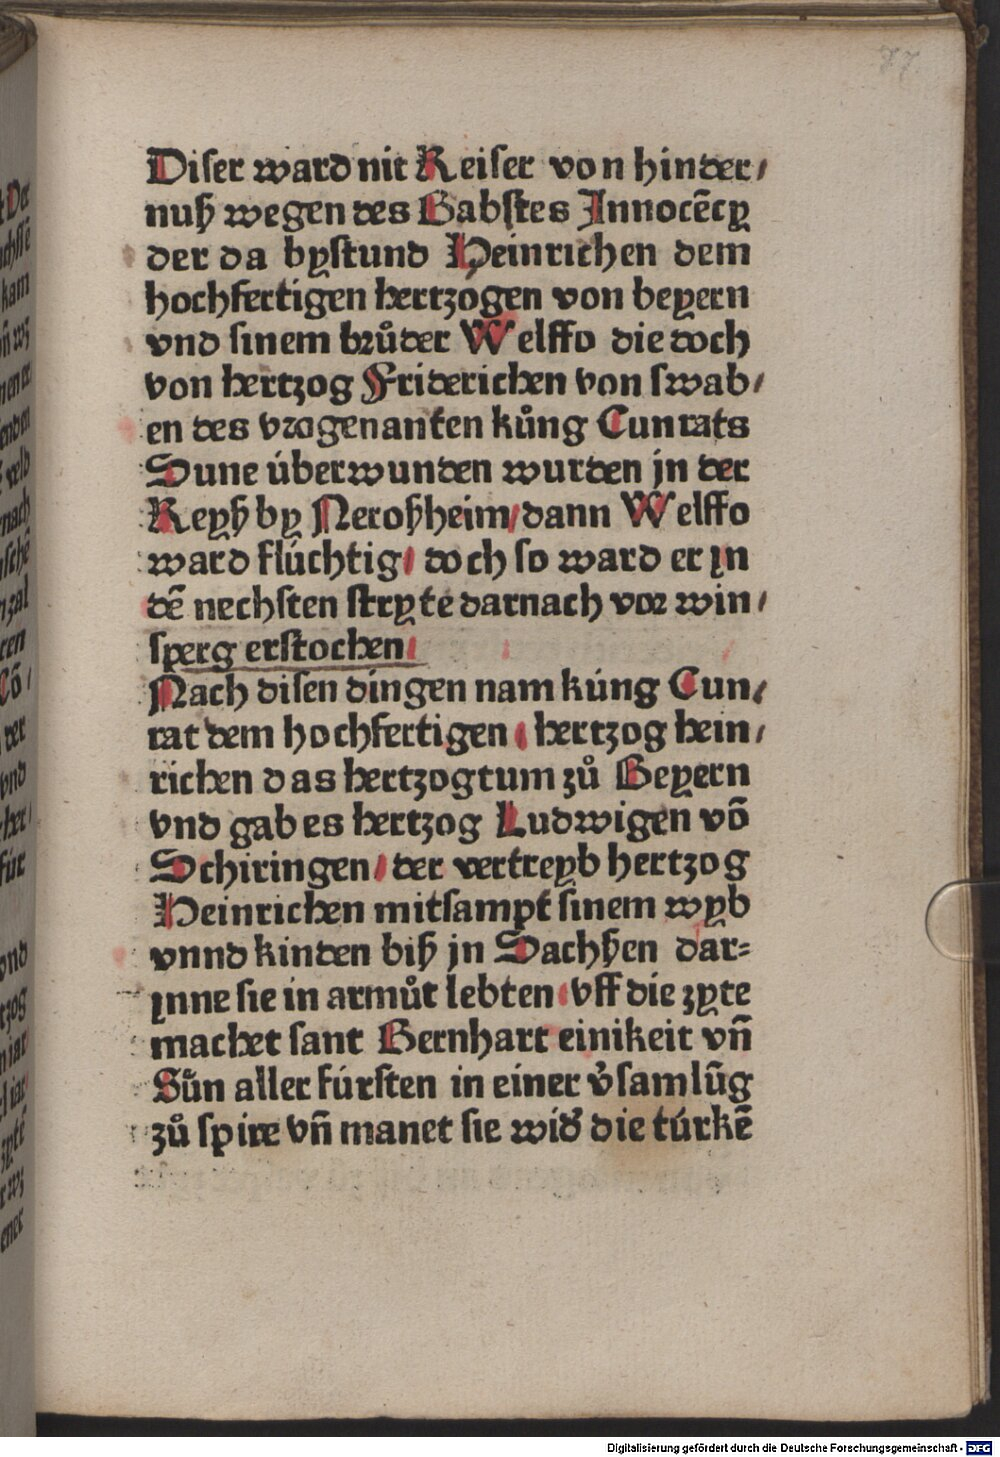 77
Diser ward nit Keiser von hinder/
nuß wegen des Babstes Innocēcy
der da bystund Heinrichen dem
hochfertigen hertzogen von beyern
vnd sinem brůder Welffo die doch
von hertzog Friderichen von swab/
en des vorgenanten kůng Cunrats
Sune überwunden wurden jn der
Reyß by Neroßheim/dann Welffo
ward flüchtig/ doch so ward er jn
dē nechsten stryte darnach vor win/
sperg erstochen/
Nach disen dingen nam küng Cun/
rat dem hochfertigen/ hertzog hein/
richen das hertzogtum zů Beyern
vnd gab es hertzog Ludwigen vō
Schiringen/ der vertreyb hertzog
Heinrichen mitsampt sinem wyb
vnnd kinden biß jn Sachßen dar=
ynne sie in armůt lebten/ vff die zyte
machet sant Bernhart einikeit vñ
Sůn aller fürsten in einer v̉samlūg
zů spire vñ manet sie wid̉ die türkē
Digitalisierung gefördert durch die Deutsche Forschungsgemeinschaft - DFG